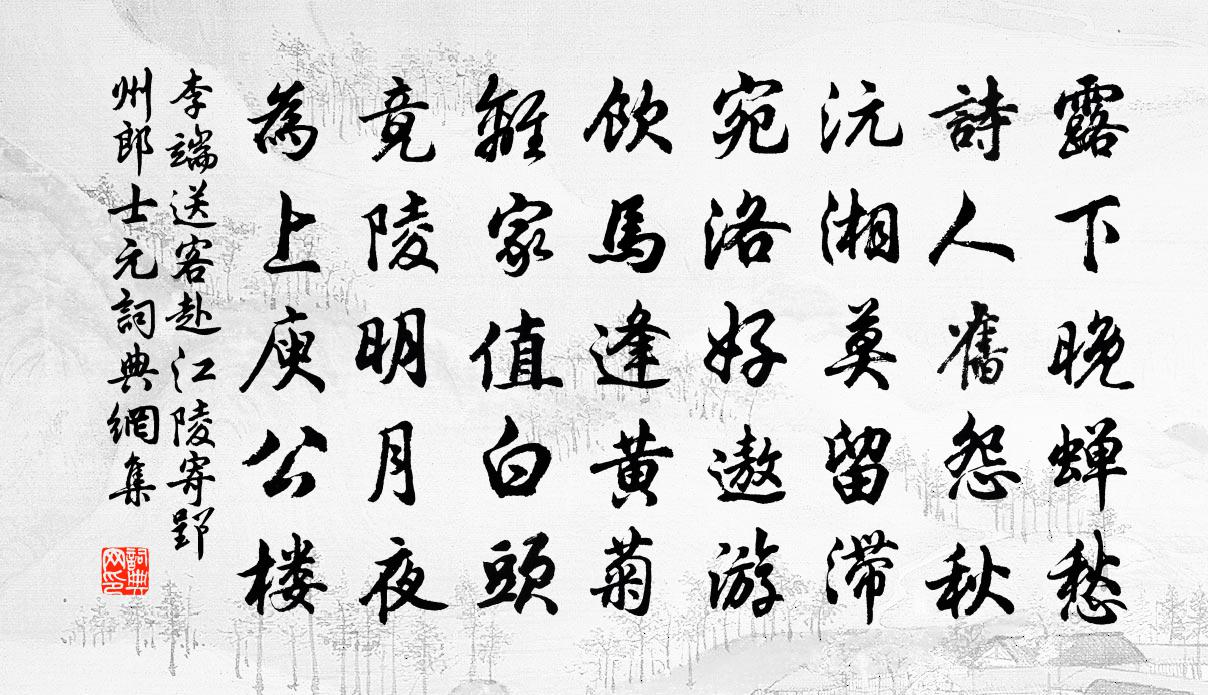 露下晚蝉愁
詩人舊怨秋
沅湘莫留滯
宛洛好遨游
飲馬逢黄菊
離家值白頭
竟陵明月夜
為上庾公楼
李端送客赴江陵寄郢
州郎士元詞典網集
詞典
网印